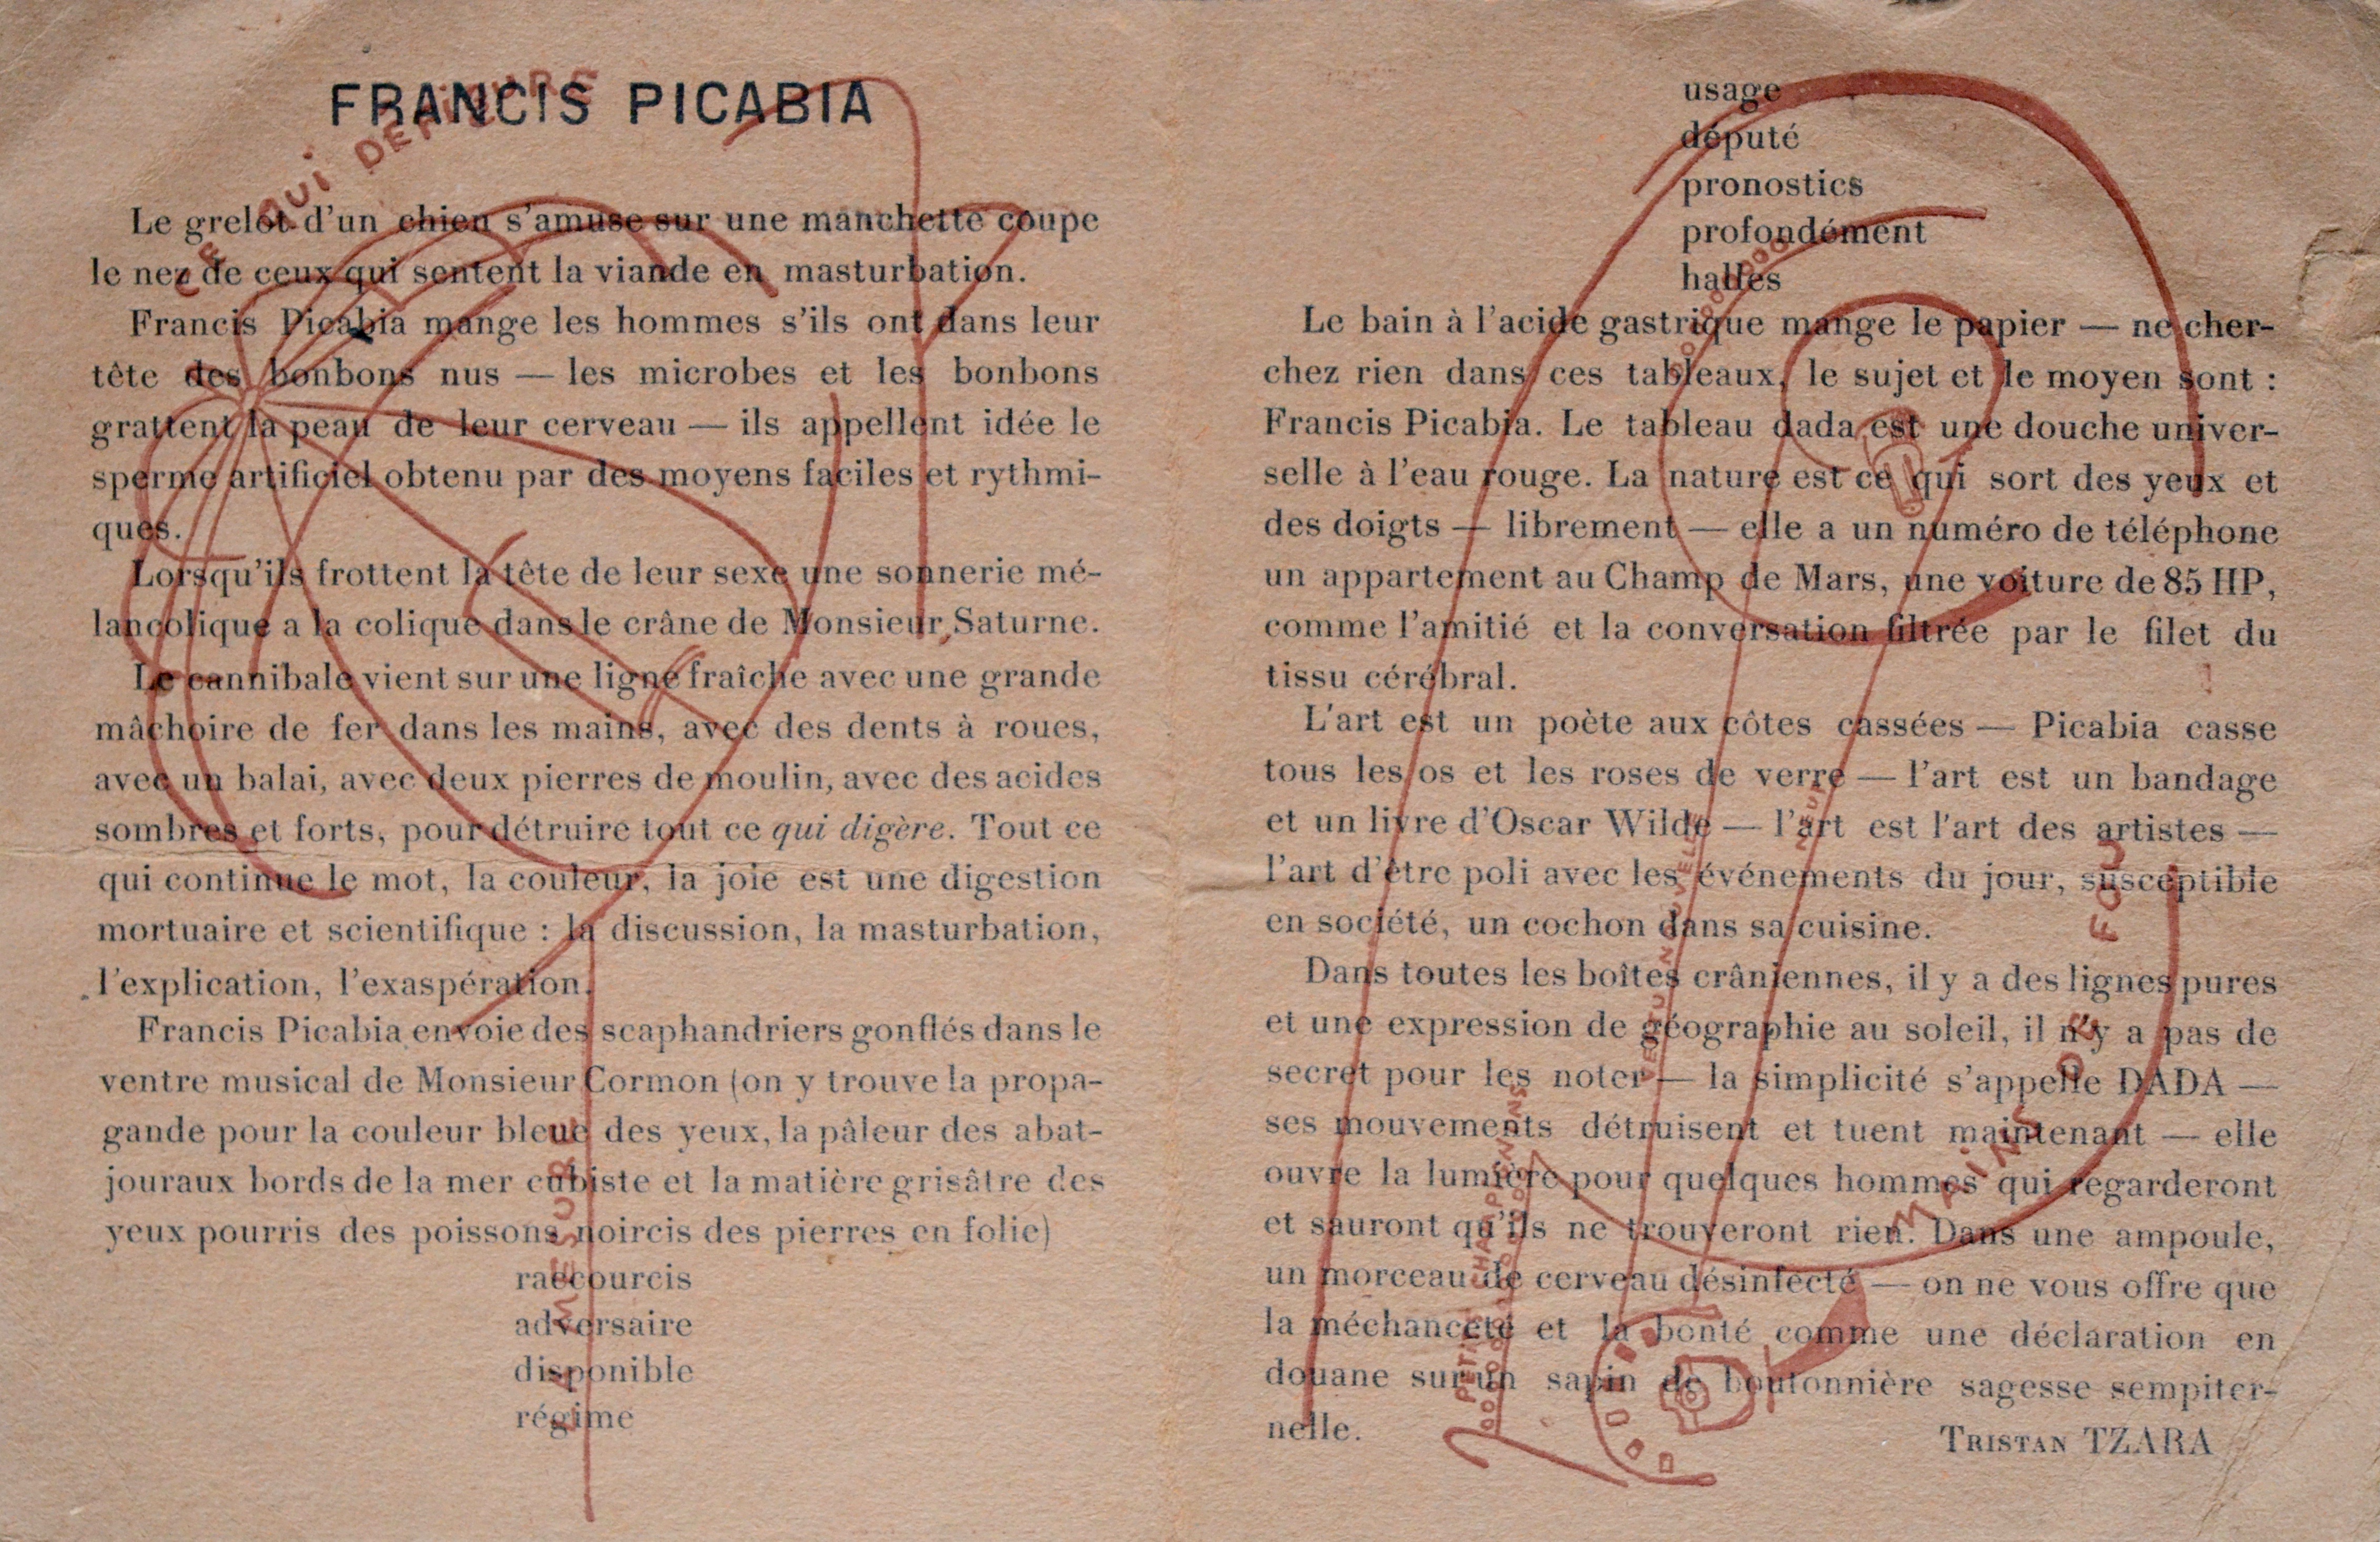 FRANCIS PICABIA
Le grelot d'un chien s'amuse sur une manchette coupe
le nez de ceux qui sentent la viande en masturbation.
Francis Picabia mange les hommes s'ils ont dans leur
tête des bonbons nus — les microbes et les bonbons
grattent la peau de leur cerveau — ils appellent idée le
sperme artificiel obtenu par des moyens faciles et rythmi-
ques.
Lorsqu'ils frottent la tête de leur sexe une sonnerie mé-
lancolique a la colique dans le crâne de Monsieur Saturne.
Le cannibale vient sur une ligne fraîche avec une grande
mâchoire de fer dans les mains, avec des dents à roues,
avec un balai, avec deux pierres de moulin, avec des acides
sombres et forts, pour détruire tout ce qui digère. Tout ce
qui continue le mot, la couleur, la joie est une digestion
mortuaire et scientifique : la discussion, la masturbation,
l'explication, l'exaspération.
Francis Picabia envoie des scaphandriers gonflés dans le
ventre musical de Monsieur Cormon (on y trouve la propa-
gande pour la couleur bleue des yeux, la pâleur des abat-
jouraux bords de la mer cubiste et la matière grisâtre des
yeux pourris des poissons noircis des pierres en folie)
raccourcis
adversaire
disponible
régime
usage
député
pronostics
profondément
halles
Le bain à l'acide gastrique mange le papier — ne cher-
chez rien dans ces tableaux, le sujet et le moyen sont :
Francis Picabia. Le tableau dada est une douche univer-
selle à l'eau rouge. La nature est ce qui sort des yeux et
des doigts — librement — elle a un numéro de téléphone
un appartement au Champ de Mars, une voiture de 85 HP,
comme l'amitié et la conversation filtrée par le filet du
tissu cérébral.
L'art est un poète aux côtes cassées — Picabia casse
tous les os et les roses de verre — l'art est un bandage
et un livre d'Oscar Wilde — l'art est l'art des artistes —
l'art d'être poli avec les événements du jour, susceptible
en société, un cochon dans sa cuisine.
Dans toutes les boîtes crâniennes, il y a des lignes pures
et une expression de géographie au soleil, il n'y a pas de
secret pour les noter — la simplicité s'appelle DADA —
ses mouvements détruisent et tuent maintenant — elle
ouvre la lumière pour quelques hommes qui regarderont
et sauront qu'ils ne trouveront rien. Dans une ampoule,
un morceau de cerveau désinfecté — on ne vous offre que
la méchanceté et la bonté comme une déclaration en
douane sur un sapin de boutonnière sagesse sempiter-
nelle.
TRISTAN TZARA
DE FOU
MAIN